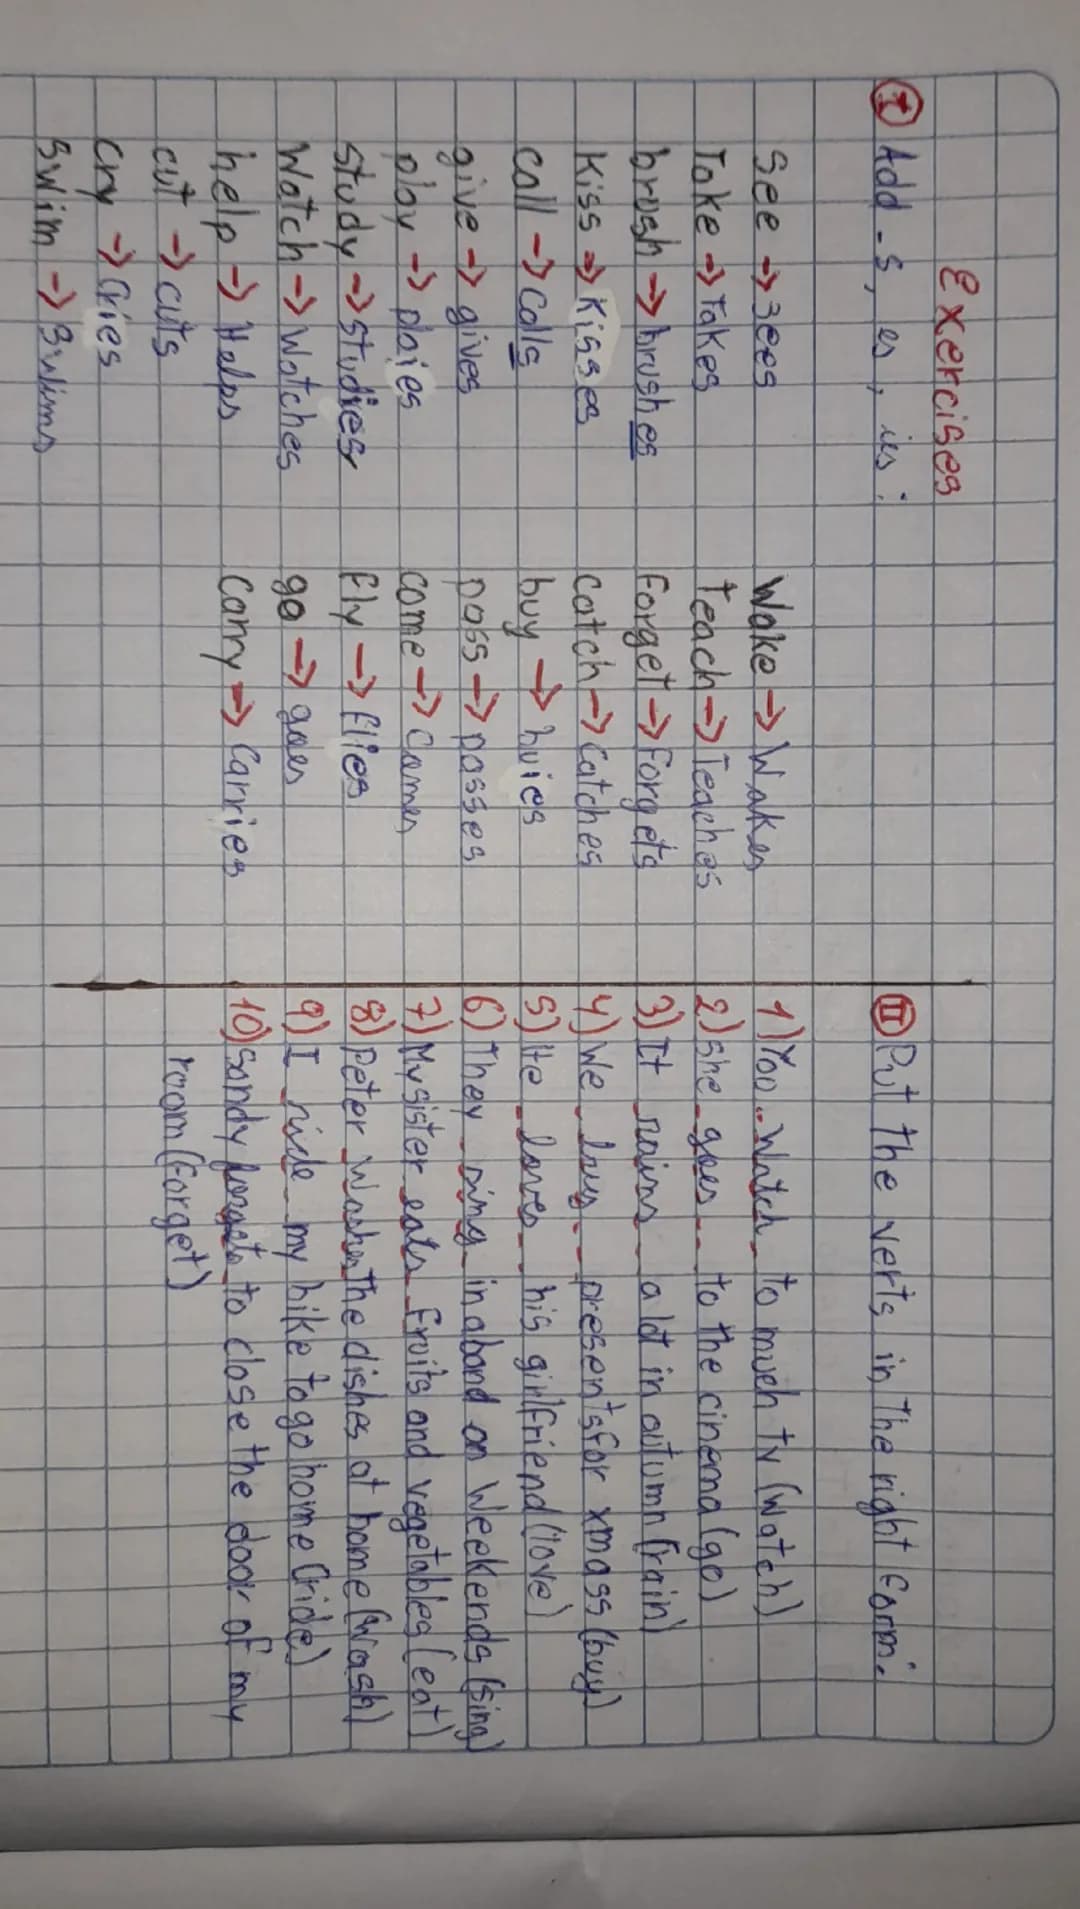 Exercises
I Add -s, es, ies:
See → sees
Take → Takes
brush → brushes
Kiss → Kisses
Call → Calls
give → gives
play → plaies
study → studies
Watch → Watches
help → Helps
cut → cuts
cry → Cries
Swim → Swims
Wake → Wakes
Teach → Teaches
Forget → Forgets
Catch → Catches
buy → buies
pass → passes
come → Comes
Fly → flies
go → goes
Carry → Carries
II Put the verts in the right form:
1) You Watch to much tv (watch)
2) She goes to the cinema (go)
3) It rains a lot in autumn (rain)
4) We buy presents for xmass (buy)
5) He loves his girlfriend (love)
6) They sing in a band on Weekends (sing)
7) My sister eats fruits and vegetables (eat)
8) Peter Washes the dishes at home (wash)
9) I ride my bike to go home (ride)
10) Sandy forgets to close the door of my
room (Forget)